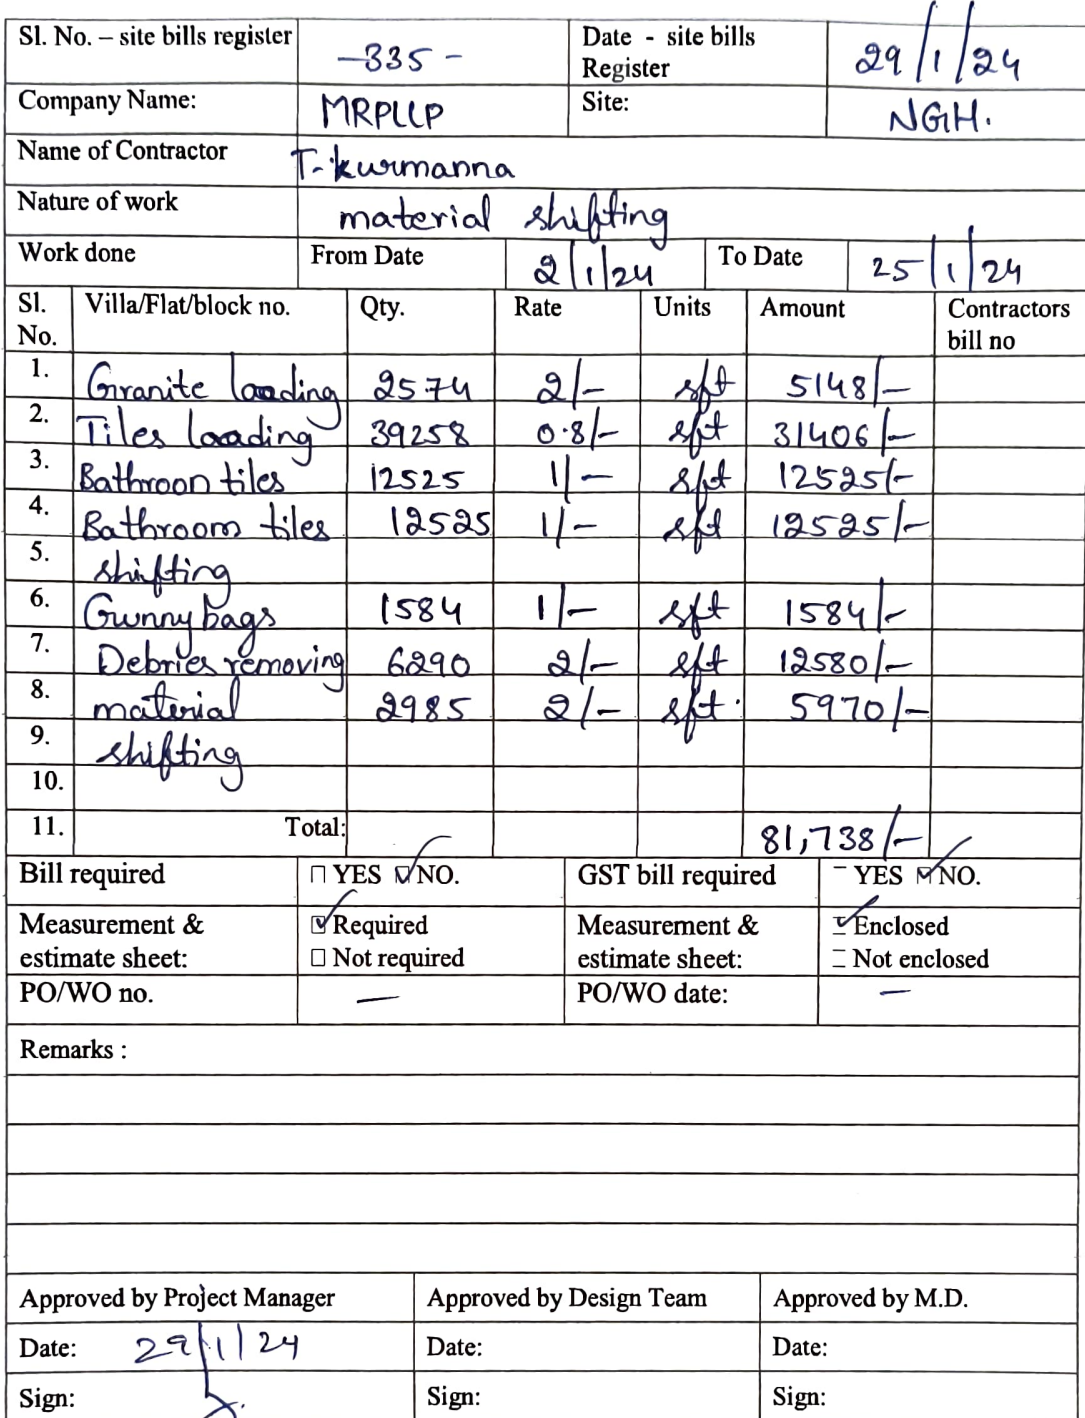 Sl. No. – site bills register -335- Date - site bills Register 29/1/24
Company Name: MRPLLP Site: NGH.
Name of Contractor T. kurmanna
Nature of work material shifting
Work done From Date 2/1/24 To Date 25/1/24
Sl. No. Villa/Flat/block no. Qty. Rate Units Amount Contractors bill no
1. Granite loading 2574 2/- sft 5148/-
2. Tiles loading 39258 0.8/- sft 31406/-
3. Bathroon tiles 12525 1/- sft 12525/-
4. Bathroom tiles 12525 1/- sft 12525/-
5. shifting
6. Gunny bags 1584 1/- sft 1584/-
7. Debries removing 6290 2/- sft 12580/-
8. material 2985 2/- sft. 5970/-
9. shifting
10.
11. Total: 81,738/-
Bill required □ YES ☑ NO. GST bill required YES ☑ NO.
Measurement & estimate sheet: ☑ Required Measurement & estimate sheet: ☑ Enclosed
□ Not required Not enclosed
PO/WO no. — PO/WO date: —
Remarks :
Approved by Project Manager Approved by Design Team Approved by M.D.
Date: 29/1/24 Date: Date:
Sign: Sign: Sign: